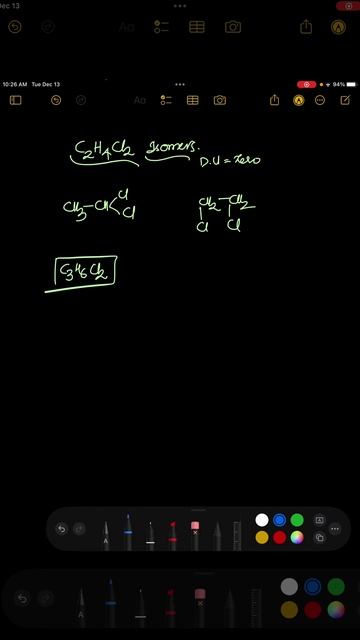 Dec 13
Aa
10:26 AM Tue Dec 13
94%
Aa
C2H4Cl2 Isomers.
D.U = zero
Cl
CH3-CH
Cl
CH2-CH2
Cl Cl
C3H6Cl2
A
A